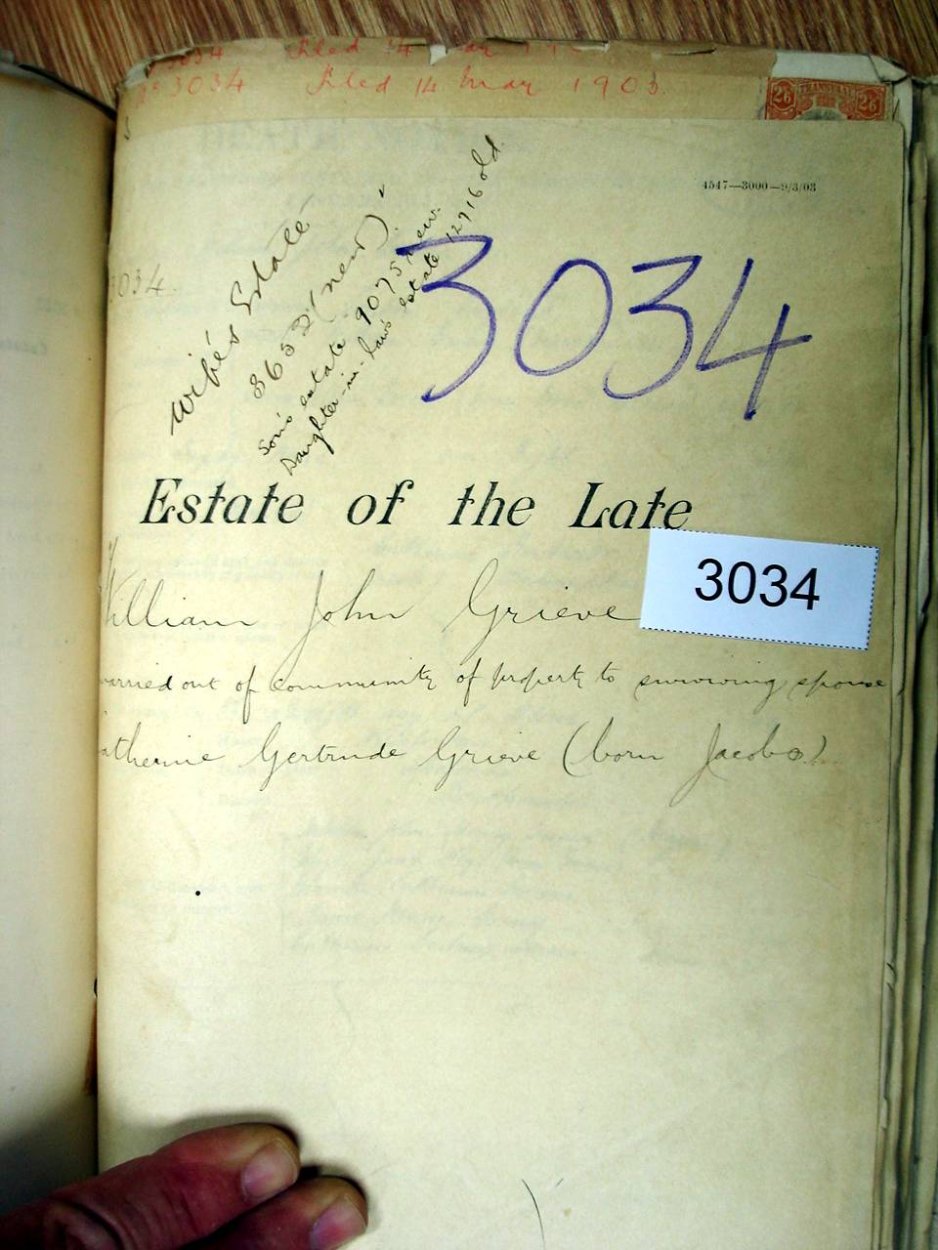 3034 filed 14 Mar
No 3034 filed 14 Mar 1903
2/6 TRANSVAAL 2/6
4547—3000—9/3/03
3034
Wife's Estate
36532 (new)
Son's estate 9075 new.
Daughter-in-law's estate 12716 old
3034
Estate of the Late
3034
William John Grieve
married out of community of property to surviving spouse
atherine Gertrude Grieve (born Jacobs)